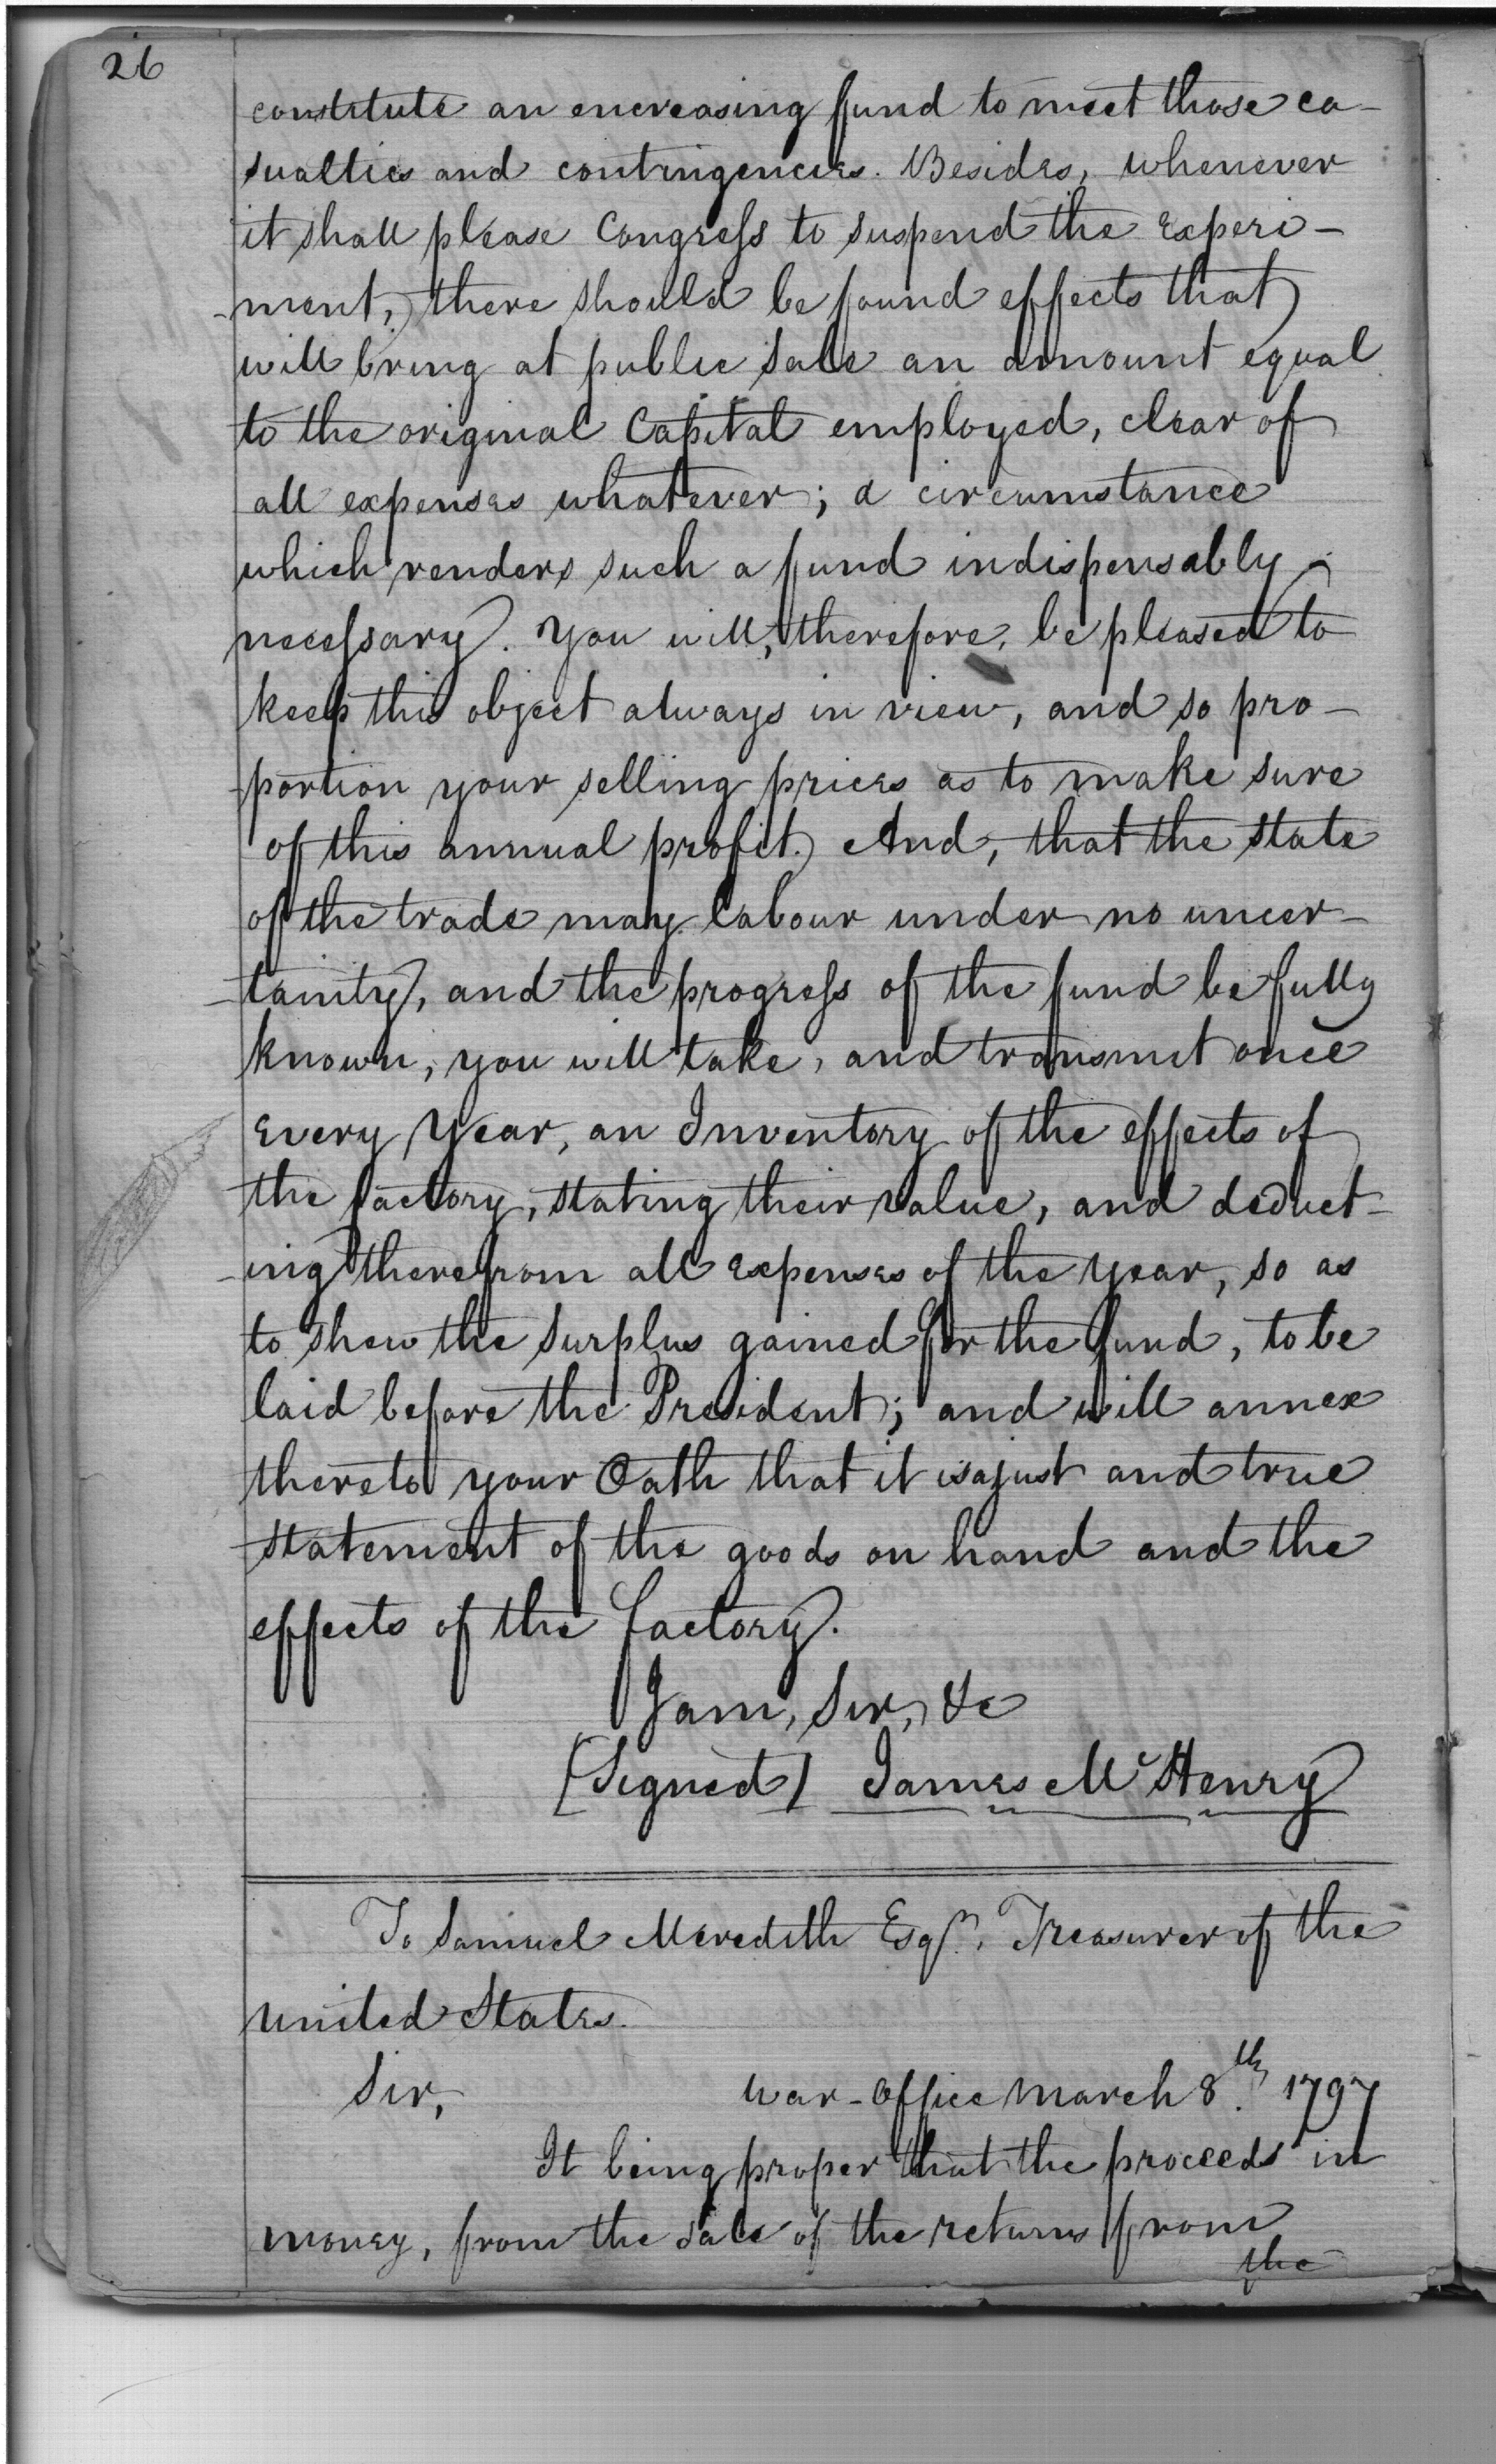 26
constitute an encreasing fund to meet those ca-
sualties and contingencies. Besides, whenever
it shall please Congress to suspend the experi-
-ment, there should be found effects that
will bring at public Sale an amount equal
to the original Capital employed, clear of
all expenses whatever; a circumstance
which renders such a fund indispensably
necessary. You will, therefore, be pleased to
keep this object always in view, and so pro-
-portion your selling prices as to make sure
of this annual profit. And, that the state
of the trade may labour under no uncer-
-tainty, and the progress of the fund be fully
known, you will take, and transmit once
every Year, an Inventory of the effects of
the factory, stating their value, and deduct-
-ing therefrom all expenses of the year, so as
to shew the Surplus gained for the fund, to be
laid before the President; and will annex
thereto your Oath that it is a just and true
statement of the goods on hand and the
effects of the factory.
I am, Sir, &c
(Signed) James McHenry
To Samuel Meredith Esqr. Treasurer of the
United States.
Sir, War-Office March 8th. 1797
It being proper that the proceeds in
money, from the sale of the returns from
the